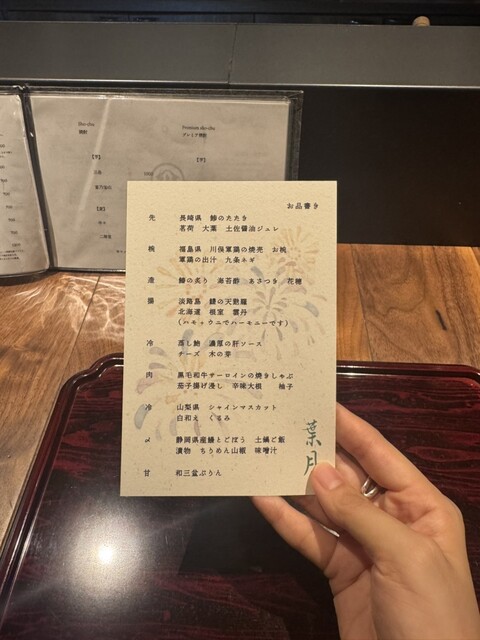 Sho-chu
焼酎
Premium sho-chu
プレミア焼酎
【芋】
【芋】
【麦】
お品書き
先 長崎県 鯵のたたき
茗荷 大葉 土佐醤油ジュレ
椀 福島県 川俣軍鶏の焼売 お椀
軍鶏の出汁 九条ネギ
造 鰆の炙り 海苔酢 あさつき 花穂
揚 淡路島 鱧の天麩羅
北海道 根室 雲丹
(ハモ+ウニでハーモニーです)
冷 蒸し鮑 濃厚の肝ソース
チーズ 木の芽
肉 黒毛和牛サーロインの焼きしゃぶ
茄子揚げ浸し 辛味大根 柚子
冷 山梨県 シャインマスカット
白和え くるみ
〆 静岡県産鰻とごぼう 土鍋ご飯
漬物 ちりめん山椒 味噌汁
甘 和三盆ぷりん
葉月